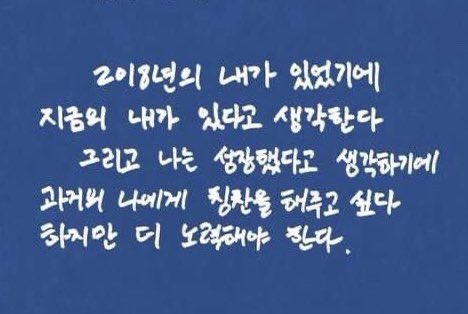 2018년의 내가 있었기에
지금의 내가 있다고 생각한다
그리고 나는 성장했다고 생각하기에
과거의 나에게 칭찬을 해주고 싶다
하지만 더 노력해야 한다.